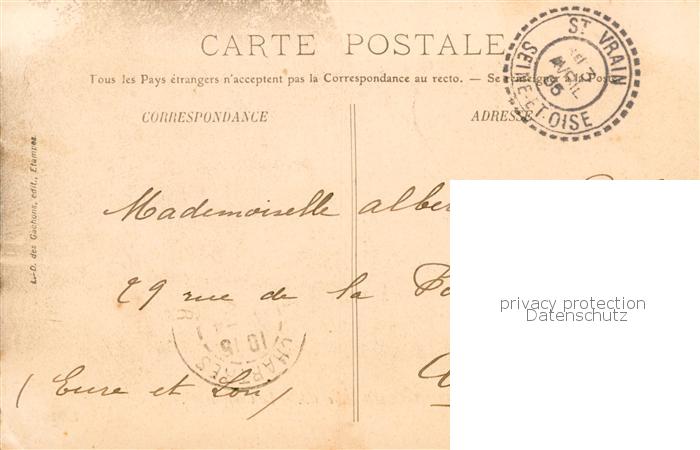 CARTE POSTALE
Tous les Pays étrangers n'acceptent pas la Correspondance au recto. — Se renseigner à la Poste
CORRESPONDANCE
ADRESSE
ST VRAIN
AVRIL
05
SEINE-ET-OISE
L.-D. des Gachons, édit., Etampes
Mademoiselle alber
29 rue de la
CHARTRES
(Eure et Loir)
privacy protection
Datenschutz